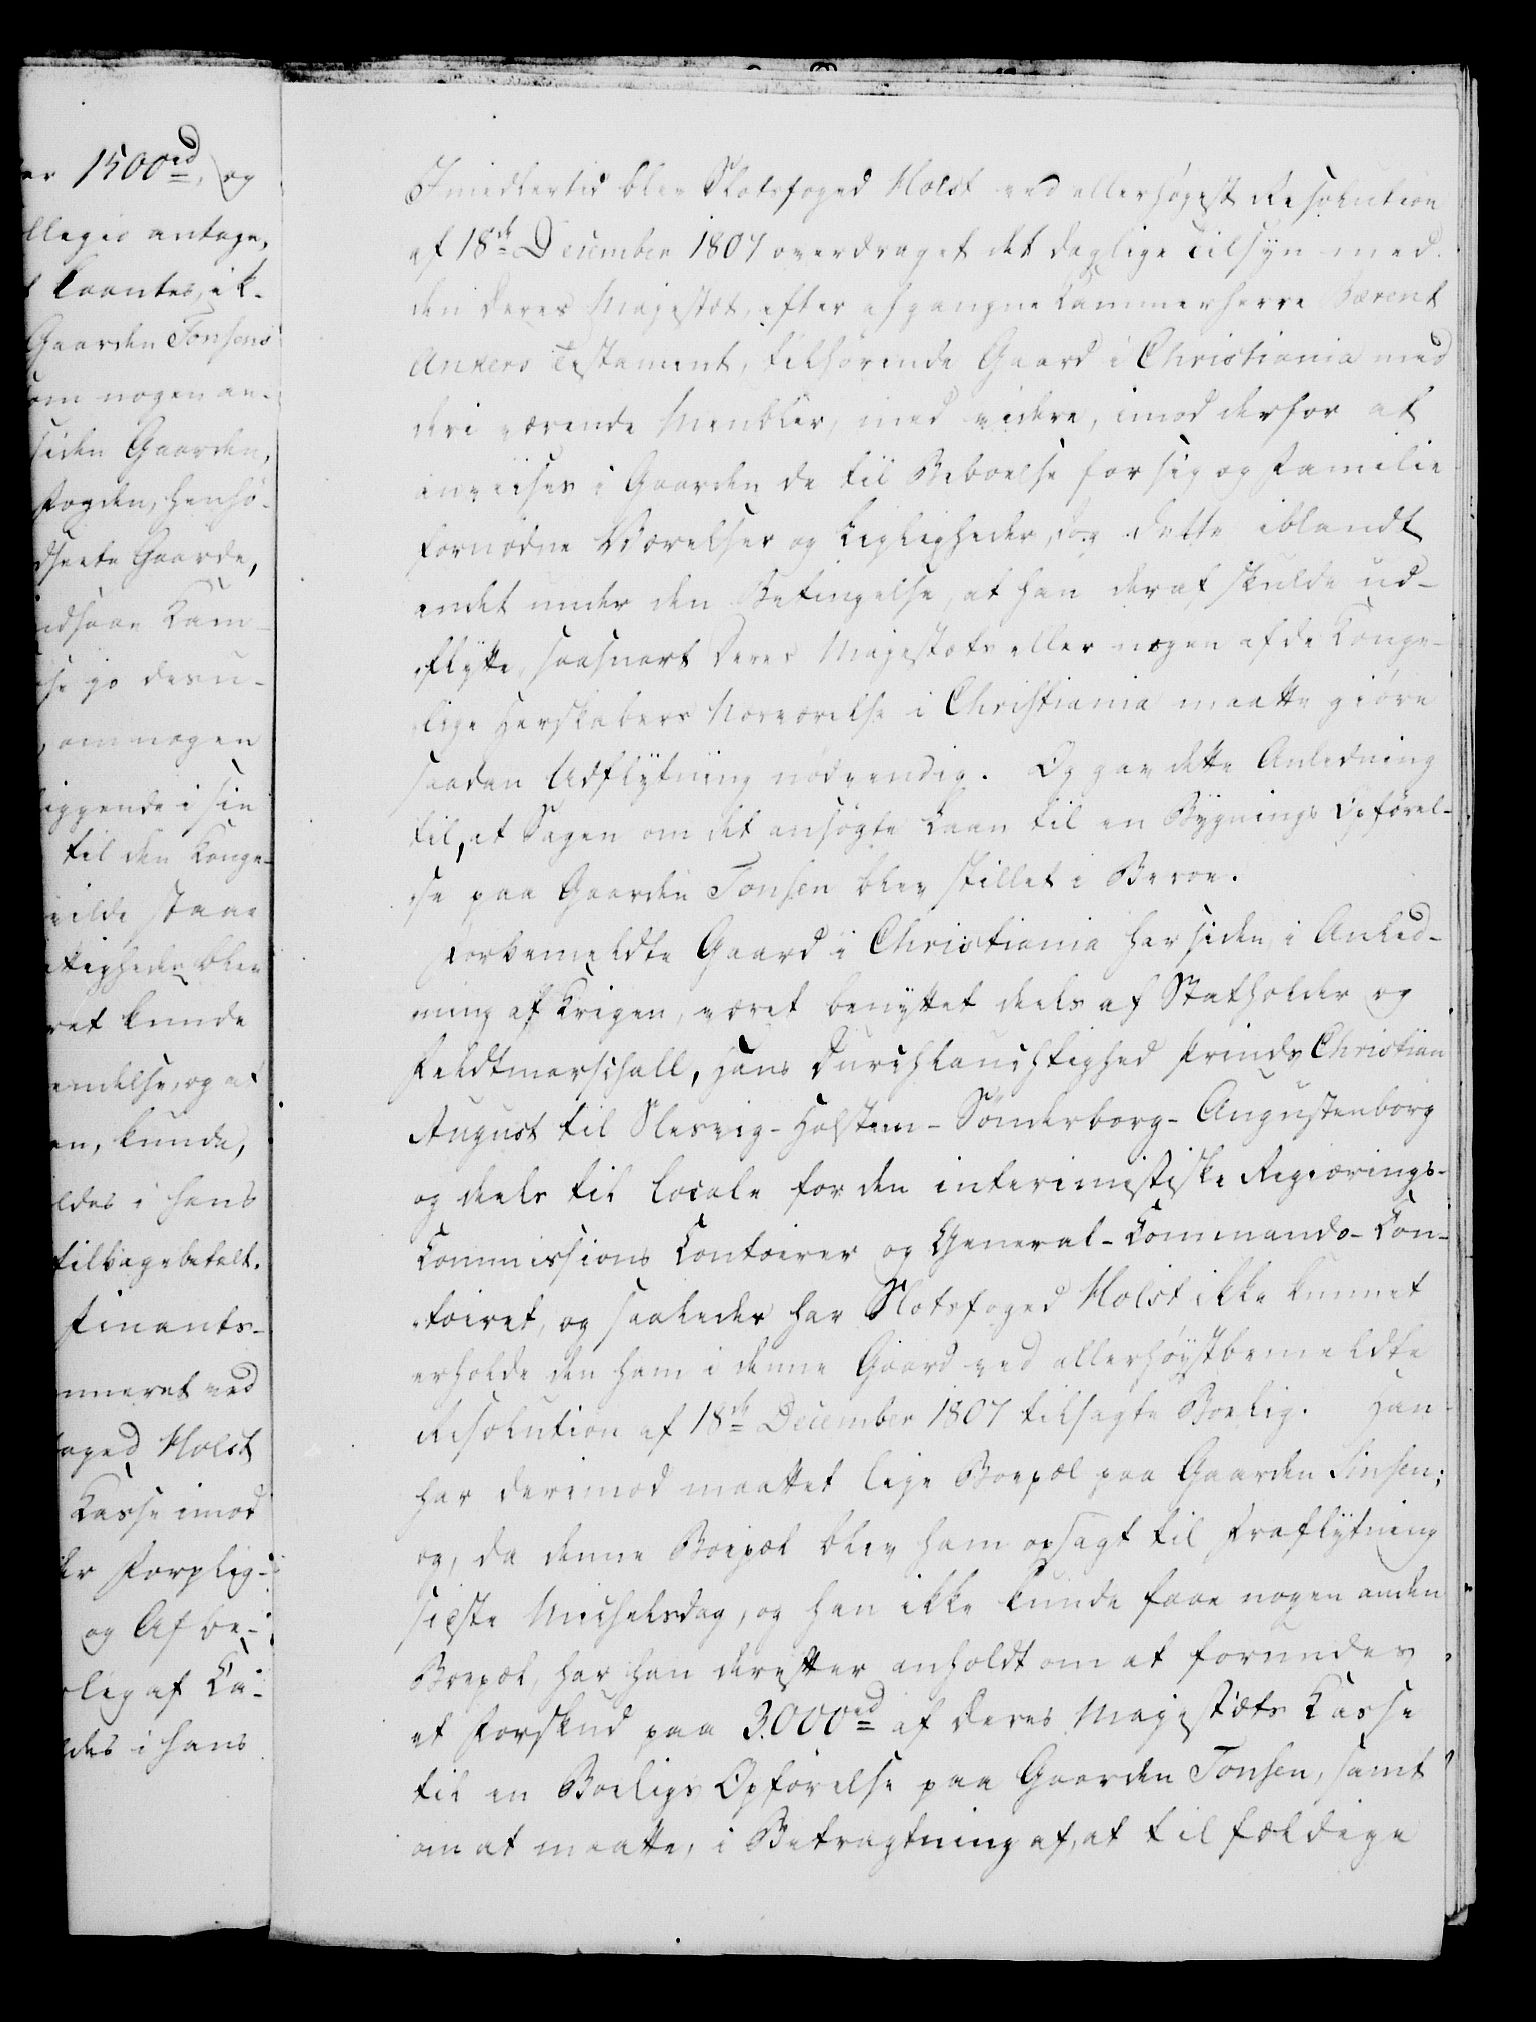 er 1500rd, og
llegio antage,
t Laantes, ik-
Gaarden Tonsens
om nogen an-
siden Gaarden,
Fogden, henhø-
dseete Gaarde,
indsaae Kam-
se jo desu-
, om nogen
liggende i sin
til den Konge-
vilde staae
ttigheden blev
ret kunde
endelse, og at
en, kunde,
ldes i hans
tilbagebetalt.
Finants-
mneret ved
foged Holst
Kasse imod
ler Forplig-
og Afbe-
lig af Ca-
ldes i hans
Imidlertid blev Slotsfoged Holst ved allerhøiest Resolution
af 18de December 1807 overdraget det daglige Tilsyn med
den Deres Majestæt, efter afgangne Kammerherre Bærent
Ankers Testament, tilhørende Gaard i Christiania med
deri værende Meubler, med videre, imod derfor at
anviises i Gaarden de til Beboelse for sig og Familie
fornødne Værelser og Leiligheder, dog dette iblandt
andet under den Betingelse, at han deraf skulde ud-
flytte, saasnart Deres Majestæts eller nogen af de Konge-
lige Herskabers Nærværelse i Christiania maatte giøre
saadan Udflytning nødvendig. Og gav dette Anledning
til, at Sagen om det ansøgte Laan til en Bygnings Opførel-
se paa Gaarden Tonsen blev stillet i Beroe.
Forbemeldte Gaard i Christiania har siden, i Anled-
ning af Krigen, været benyttet deels af Statholder og
Feldtmarschall, Hans Durchlauchtighed Prinds Christian
August til Slesvig-Holsteen-Sønderborg-Augustenborg
og deels til Locale for den interimistiske Regierings-
Commissions Contoirer og General-Commando-Con-
toiret, og saaledes har Slotsfoged Holst ikke kunnet
erholde den ham i denne Gaard ved allerhøystbemeldte
Resolution af 18de December 1807 tilsagte Boelig. Han
har derimod maattet leje Boepæl paa Gaarden Sinsen;
og, da denne Boepæl blev ham opsagt til Fraflytning
sidste Michelsdag, og han ikke kunde faae nogen anden
Boepæl, har han derefter anholdt om at forundes
et Forskud paa 3000rd af Deres Majestæts Kasse
til en Boeligs Opførelse paa Gaarden Tonsen, samt
om at maatte, i Betragtning af, at tilfældige